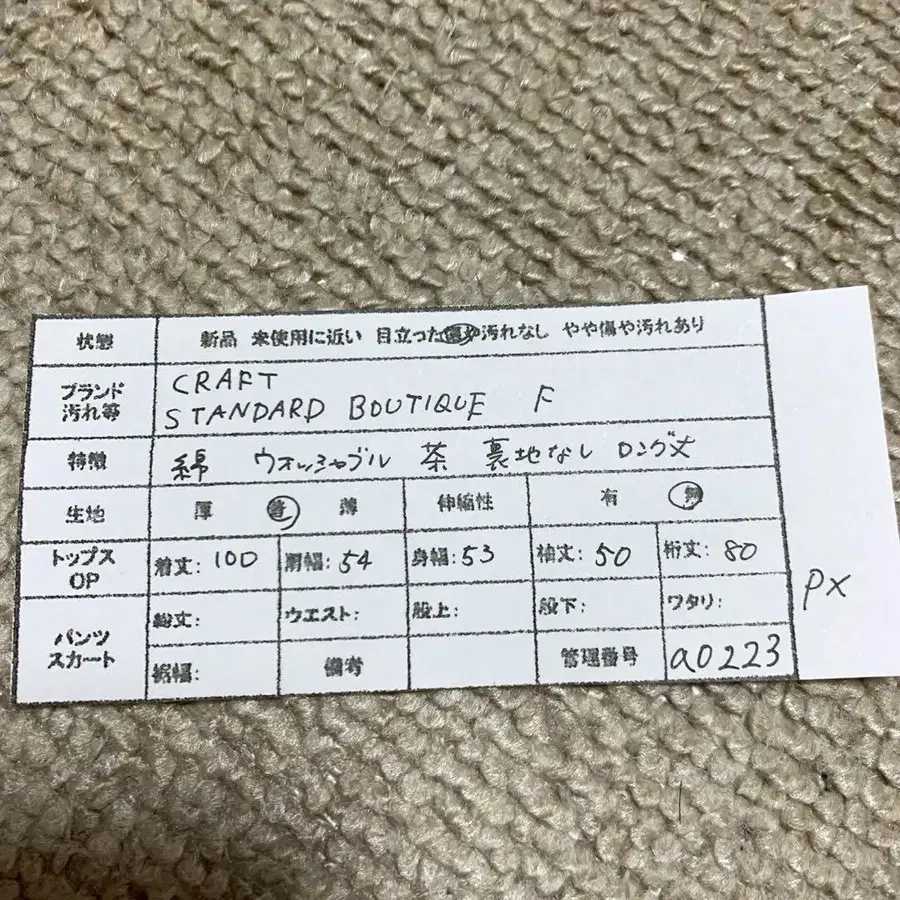 状態 新品 未使用に近い 目立った傷や汚れなし やや傷や汚れあり
ブランド CRAFT
汚れ等 STANDARD BOUTIQUE F
特徴 綿 ウォッシャブル 茶 裏地なし ロング丈
生地 厚 普 薄 伸縮性 有 無
トップス OP 着丈: 100 肩幅: 54 身幅: 53 袖丈: 50 裄丈: 80
パンツ スカート 総丈: ウエスト: 股上: 股下: ワタリ:
裾幅: 備考 管理番号 a0223
PX